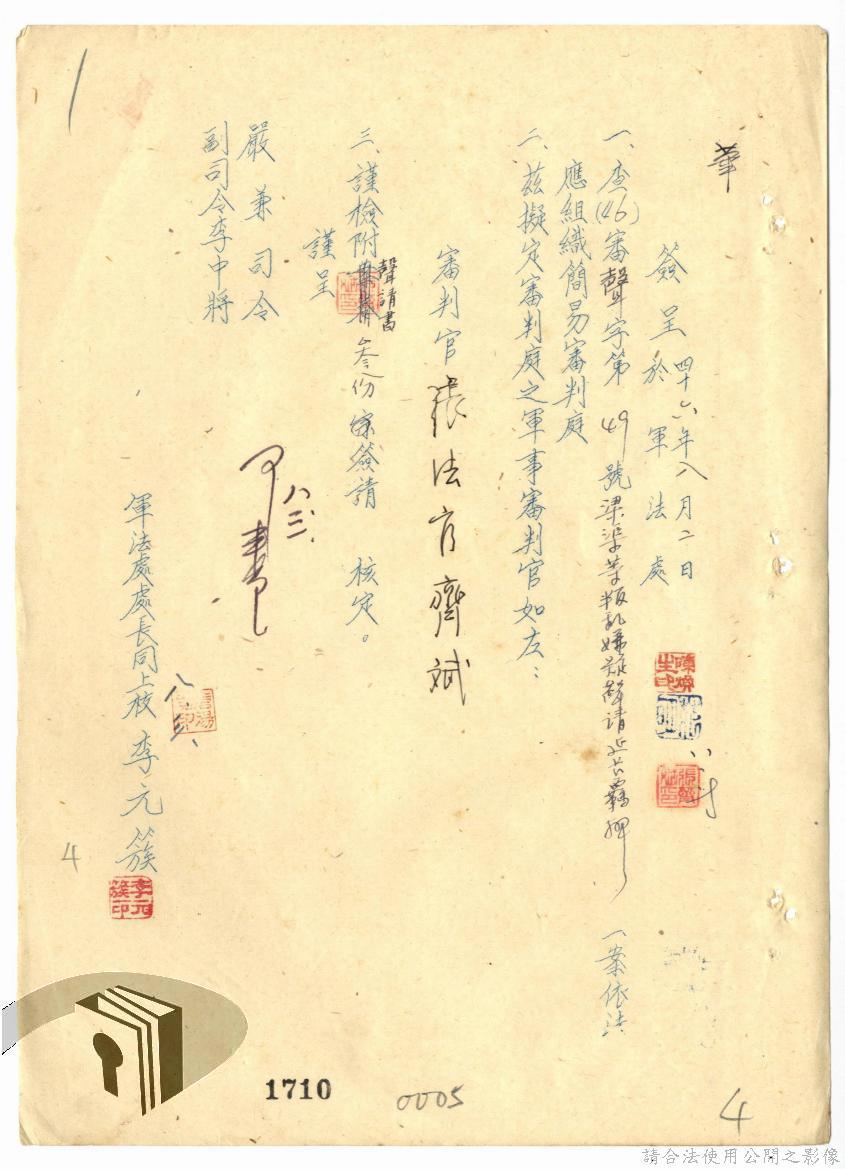 簽呈 四十六年八月二日
於軍法處
一、查(46)審聲字第49號梁渠等叛亂嫌疑聲請延長羈押一案依法
應組織簡易審判庭
二、茲擬定審判庭之軍事審判官如左：
審判官 張法官齊斌
三、謹檢附聲請書叁份 簽請 核定。
謹呈
嚴兼司令
副司令李中將
可
八、三、
軍法處處長同上校李元簇
李元簇印
1710
0005
4
4
請合法使用公開之影像